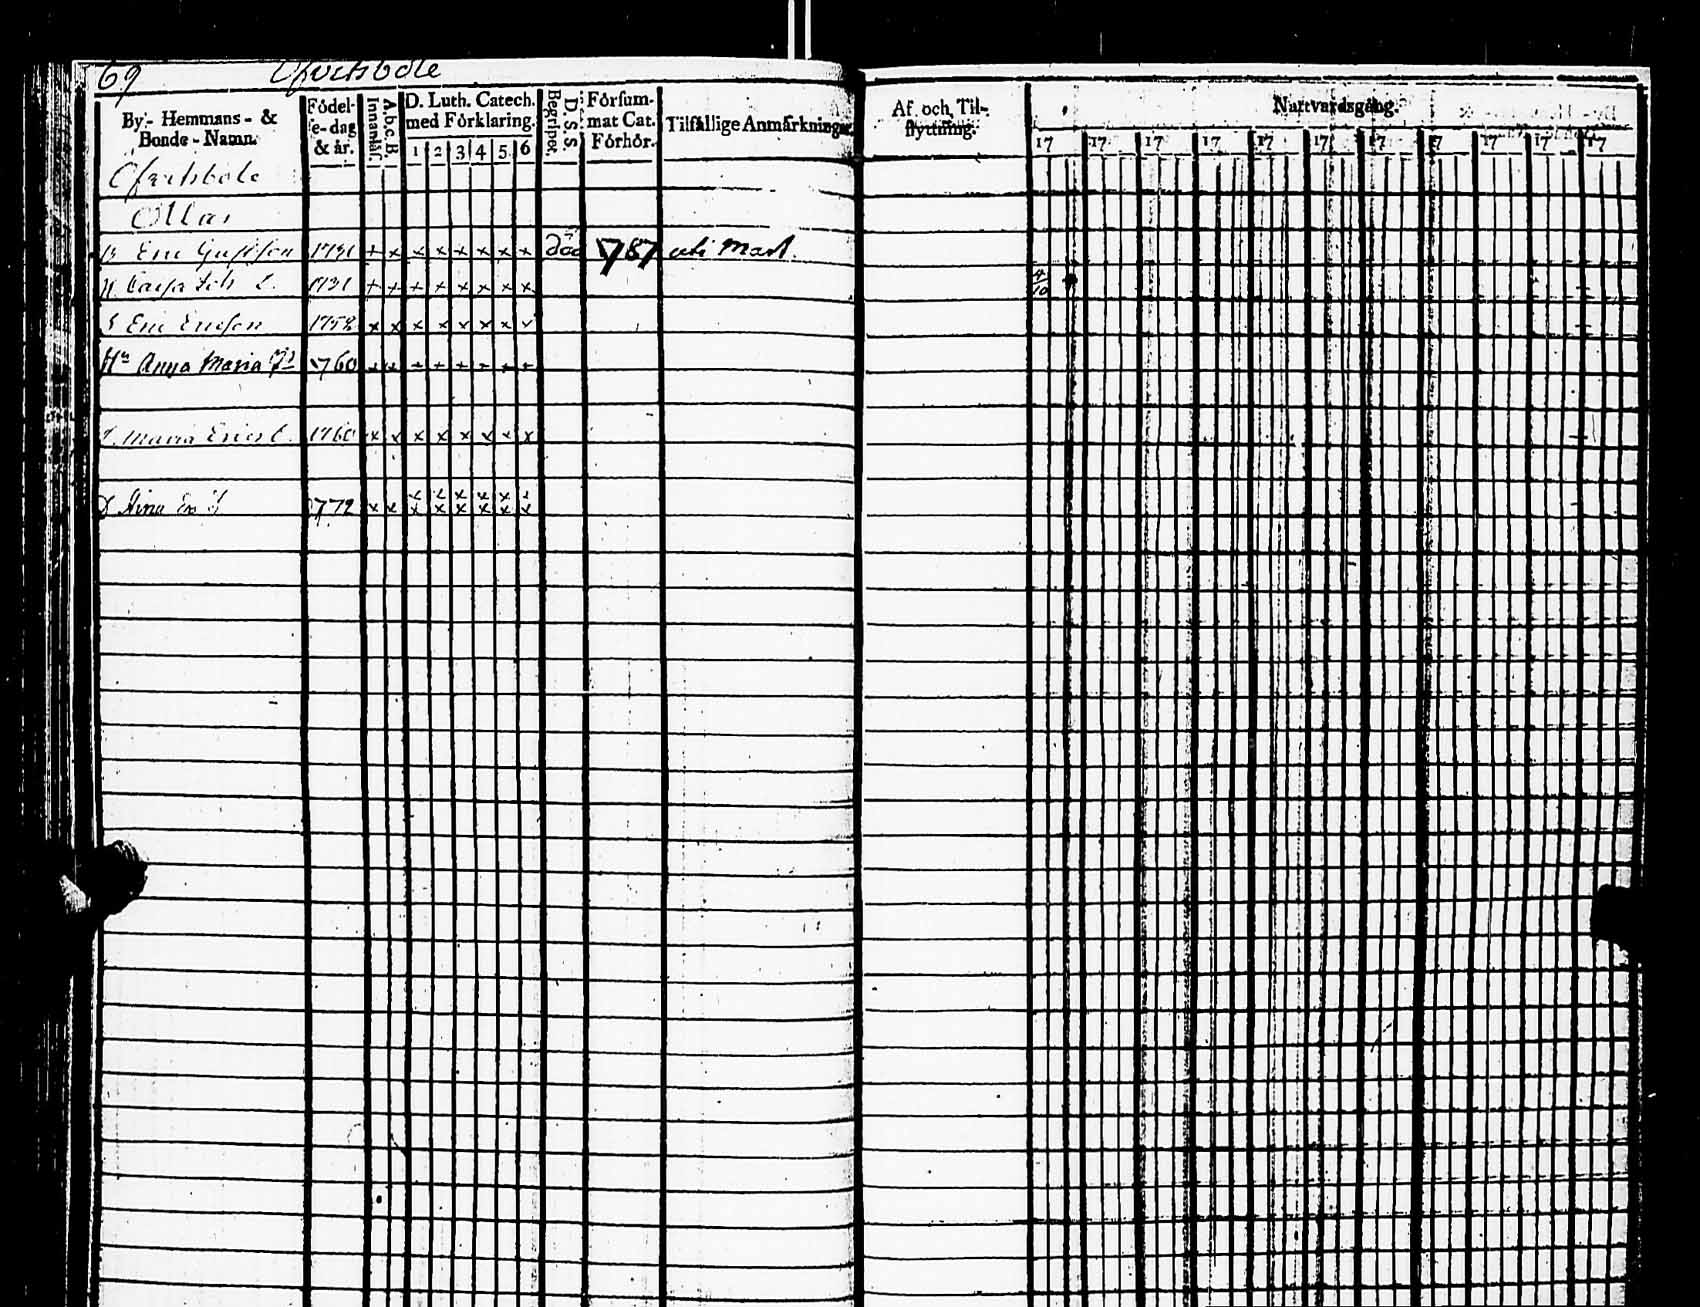 69
By- Hemmans- & Bonde-Namn.
Födelse-dag & år.
Innanläs.
A.b.c.B.
D. Luth. Catech. med Förklaring.
1 2 3 4 5 6
Begriper.
D. S. S.
Försummat Cat. Förhör.
Tilfällige Anmärkningar.
Af och Tilflyttning.
Nattvardsgång.
17 17 17 17 17 17 17 17 17 17 17
B Eric Gustfson 1731 + x x x x x x x död 787 uti Mart.
Cajsa 1731 + + + x x x x x 4/10
Eric Ericson x x x x x x x x
Hu Anna Maria 760
Maria Erics 1760 x x x x x x x x
D Stina 772 x x x x x x x x